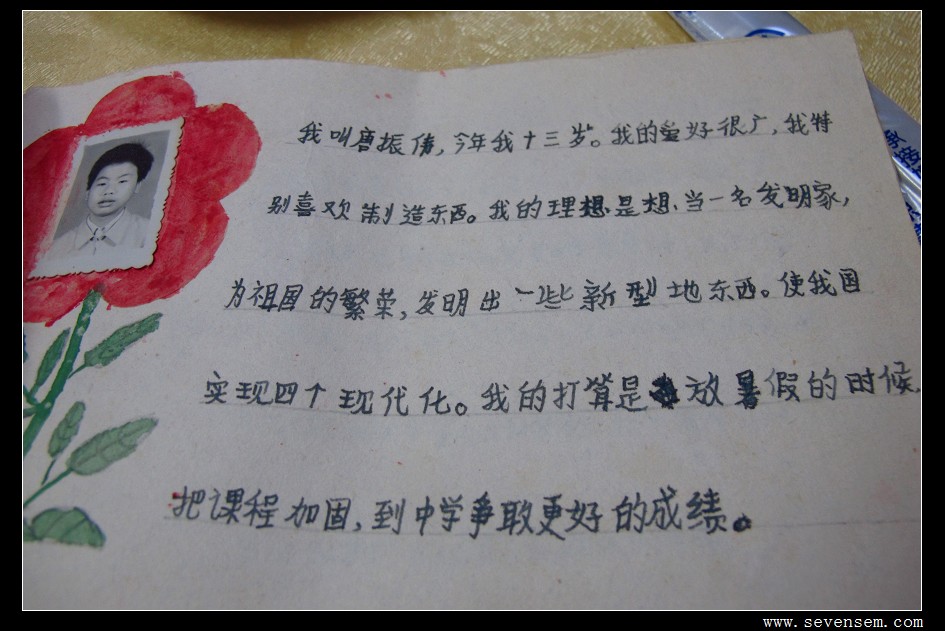 我叫唐振倩,今年我十三岁。我的爱好很广,我特
别喜欢制造东西。我的理想是想当一名发明家,
为祖国的繁荣,发明出一些新型地东西。使我国
实现四个现代化。我的打算是放暑假的时候,
把课程加固,到中学争取更好的成绩。
www.sevensem.com